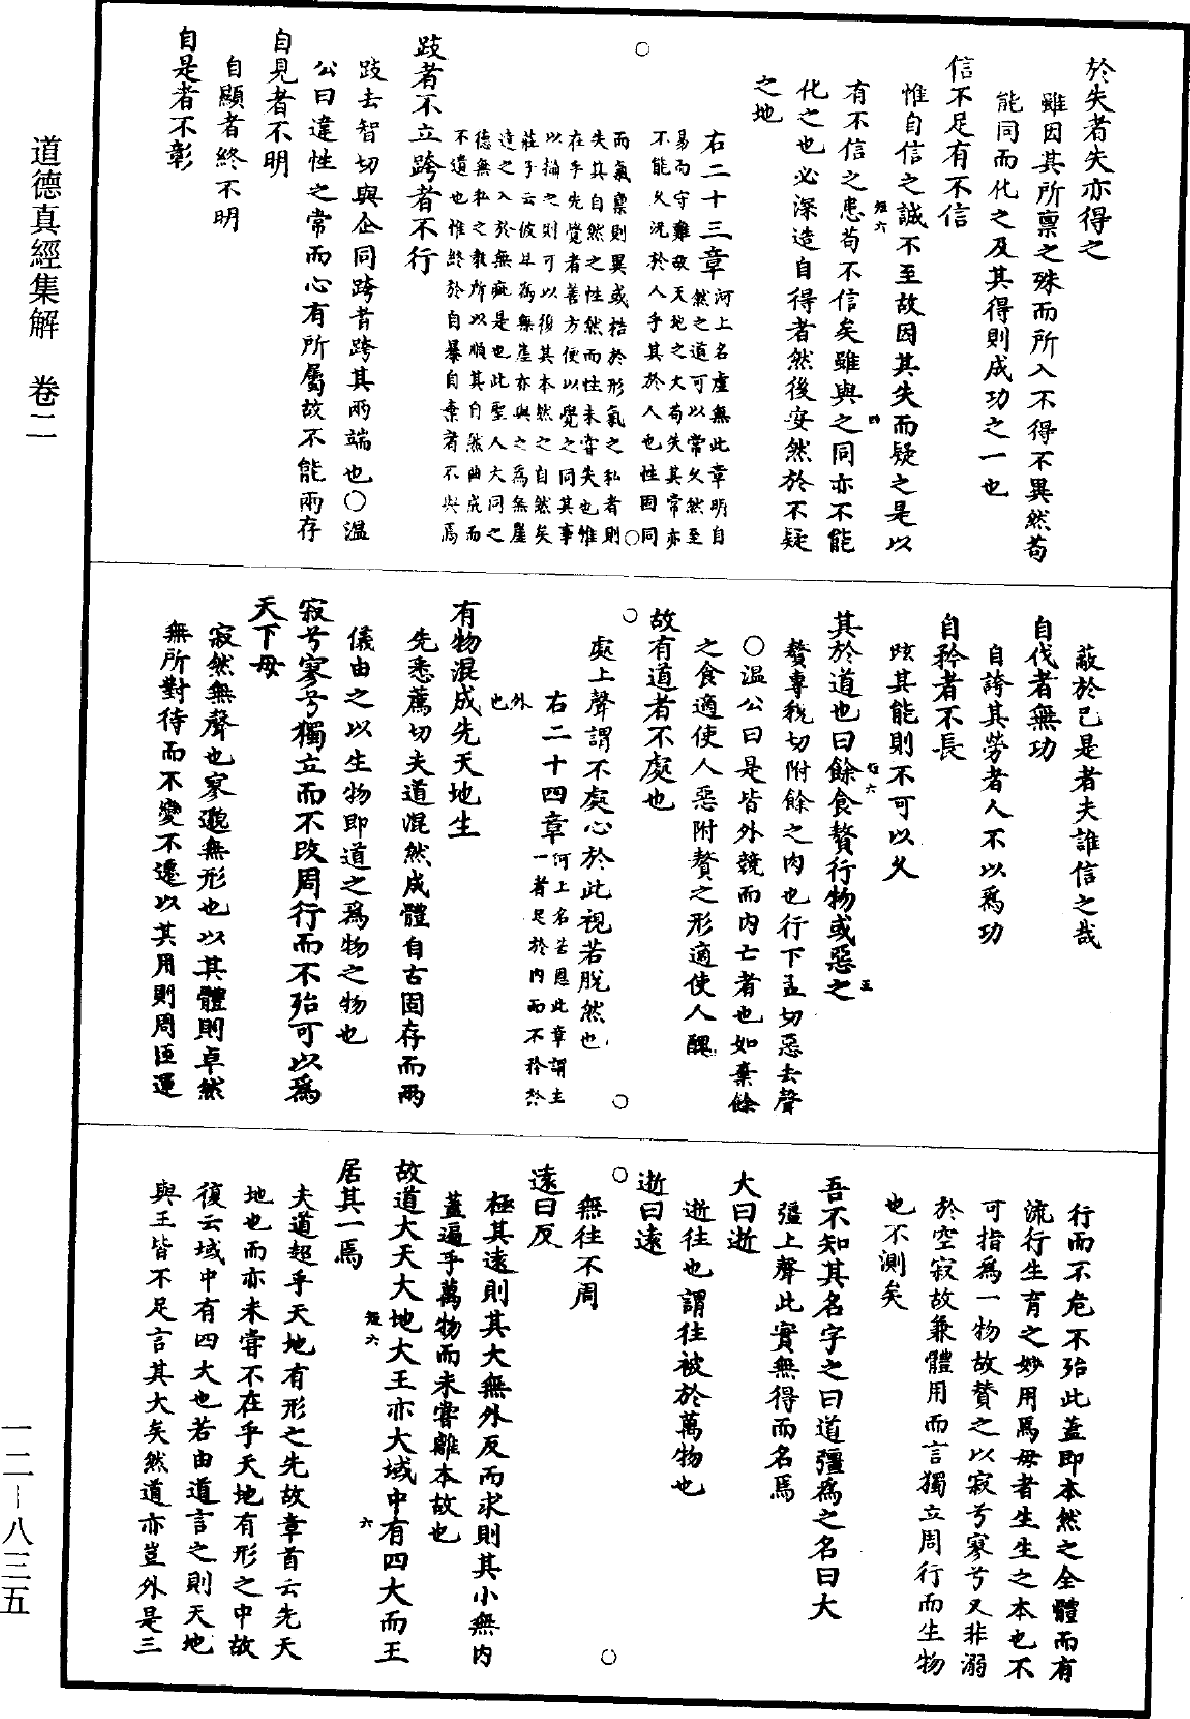 於失者失亦得之
雖因其所禀之殊而所入不得不異然苟
能同而化之及其得則成功之一也
信不足有不信
惟自信之誠不至故因其失而疑之是以
有不信之患苟不信矣雖與之同亦不能
化之也必深造自得者然後安然於不疑
之地
右二十三章河上名虛無此章明自
然之道可以常久然至
易而守難故天地之大苟失其常亦
不能久況於人乎其於人也性固同
而氣禀則異或梏於形氣之私者則
失其自然之性然而性未嘗失也惟
在乎先覺者善方便以覺之同其事
以攝之則可以復其本然之自然矣
莊子云彼且為無崖亦與之為無崖
達之入於無疵是也此聖人大同之
德無私之教所以順其自然曲成而
不遺也惟終於自暴自棄者不與焉
跂者不立跨者不行
跂去智切與企同跨者跨其兩端也○溫
公曰違性之常而心有所屬故不能兩存
自見者不明
自顯者終不明
自是者不彰
蔽於己是者夫誰信之哉
自伐者無功
自誇其勞者人不以為功
自矜者不長
眩其能則不可以久
其於道也曰餘食贅行物或惡之
贅專稅切附餘之肉也行下孟切惡去聲
○溫公曰是皆外競而內亡者也如棄餘
之食適使人惡附贅之形適使人醜
故有道者不處也
處上聲謂不處心於此視若脫然也
右二十四章河上名苦恩此章謂主
一者足於內而不矜於
外
也
有物混成先天地生
先悉薦切夫道混然成體自古固存而兩
儀由之以生物即道之為物之物也
寂兮寥兮獨立而不改周行而不殆可以為
天下母
寂然無聲也寥邈無形也以其體則卓然
無所對待而不變不遷以其用則周匝運
行而不危不殆此蓋即本然之全體而有
流行生育之妙用焉母者生生之本也不
可指為一物故贊之以寂兮寥兮又非溺
於空寂故兼體用而言獨立周行而生物
也不測矣
吾不知其名字之曰道彊為之名曰大
彊上聲此實無得而名焉
大曰逝
逝往也謂往被於萬物也
逝曰遠
無往不周
遠曰反
極其遠則其大無外反而求則其小無內
蓋遍乎萬物而未嘗離本故也
故道大天大地大王亦大域中有四大而王
居其一焉
夫道超乎天地有形之先故章首云先天
地也而亦未嘗不在乎天地有形之中故
復云域中有四大也若由道言之則天地
與王皆不足言其大矣然道亦豈外是三
道德真經集解 卷二
一二—八三五